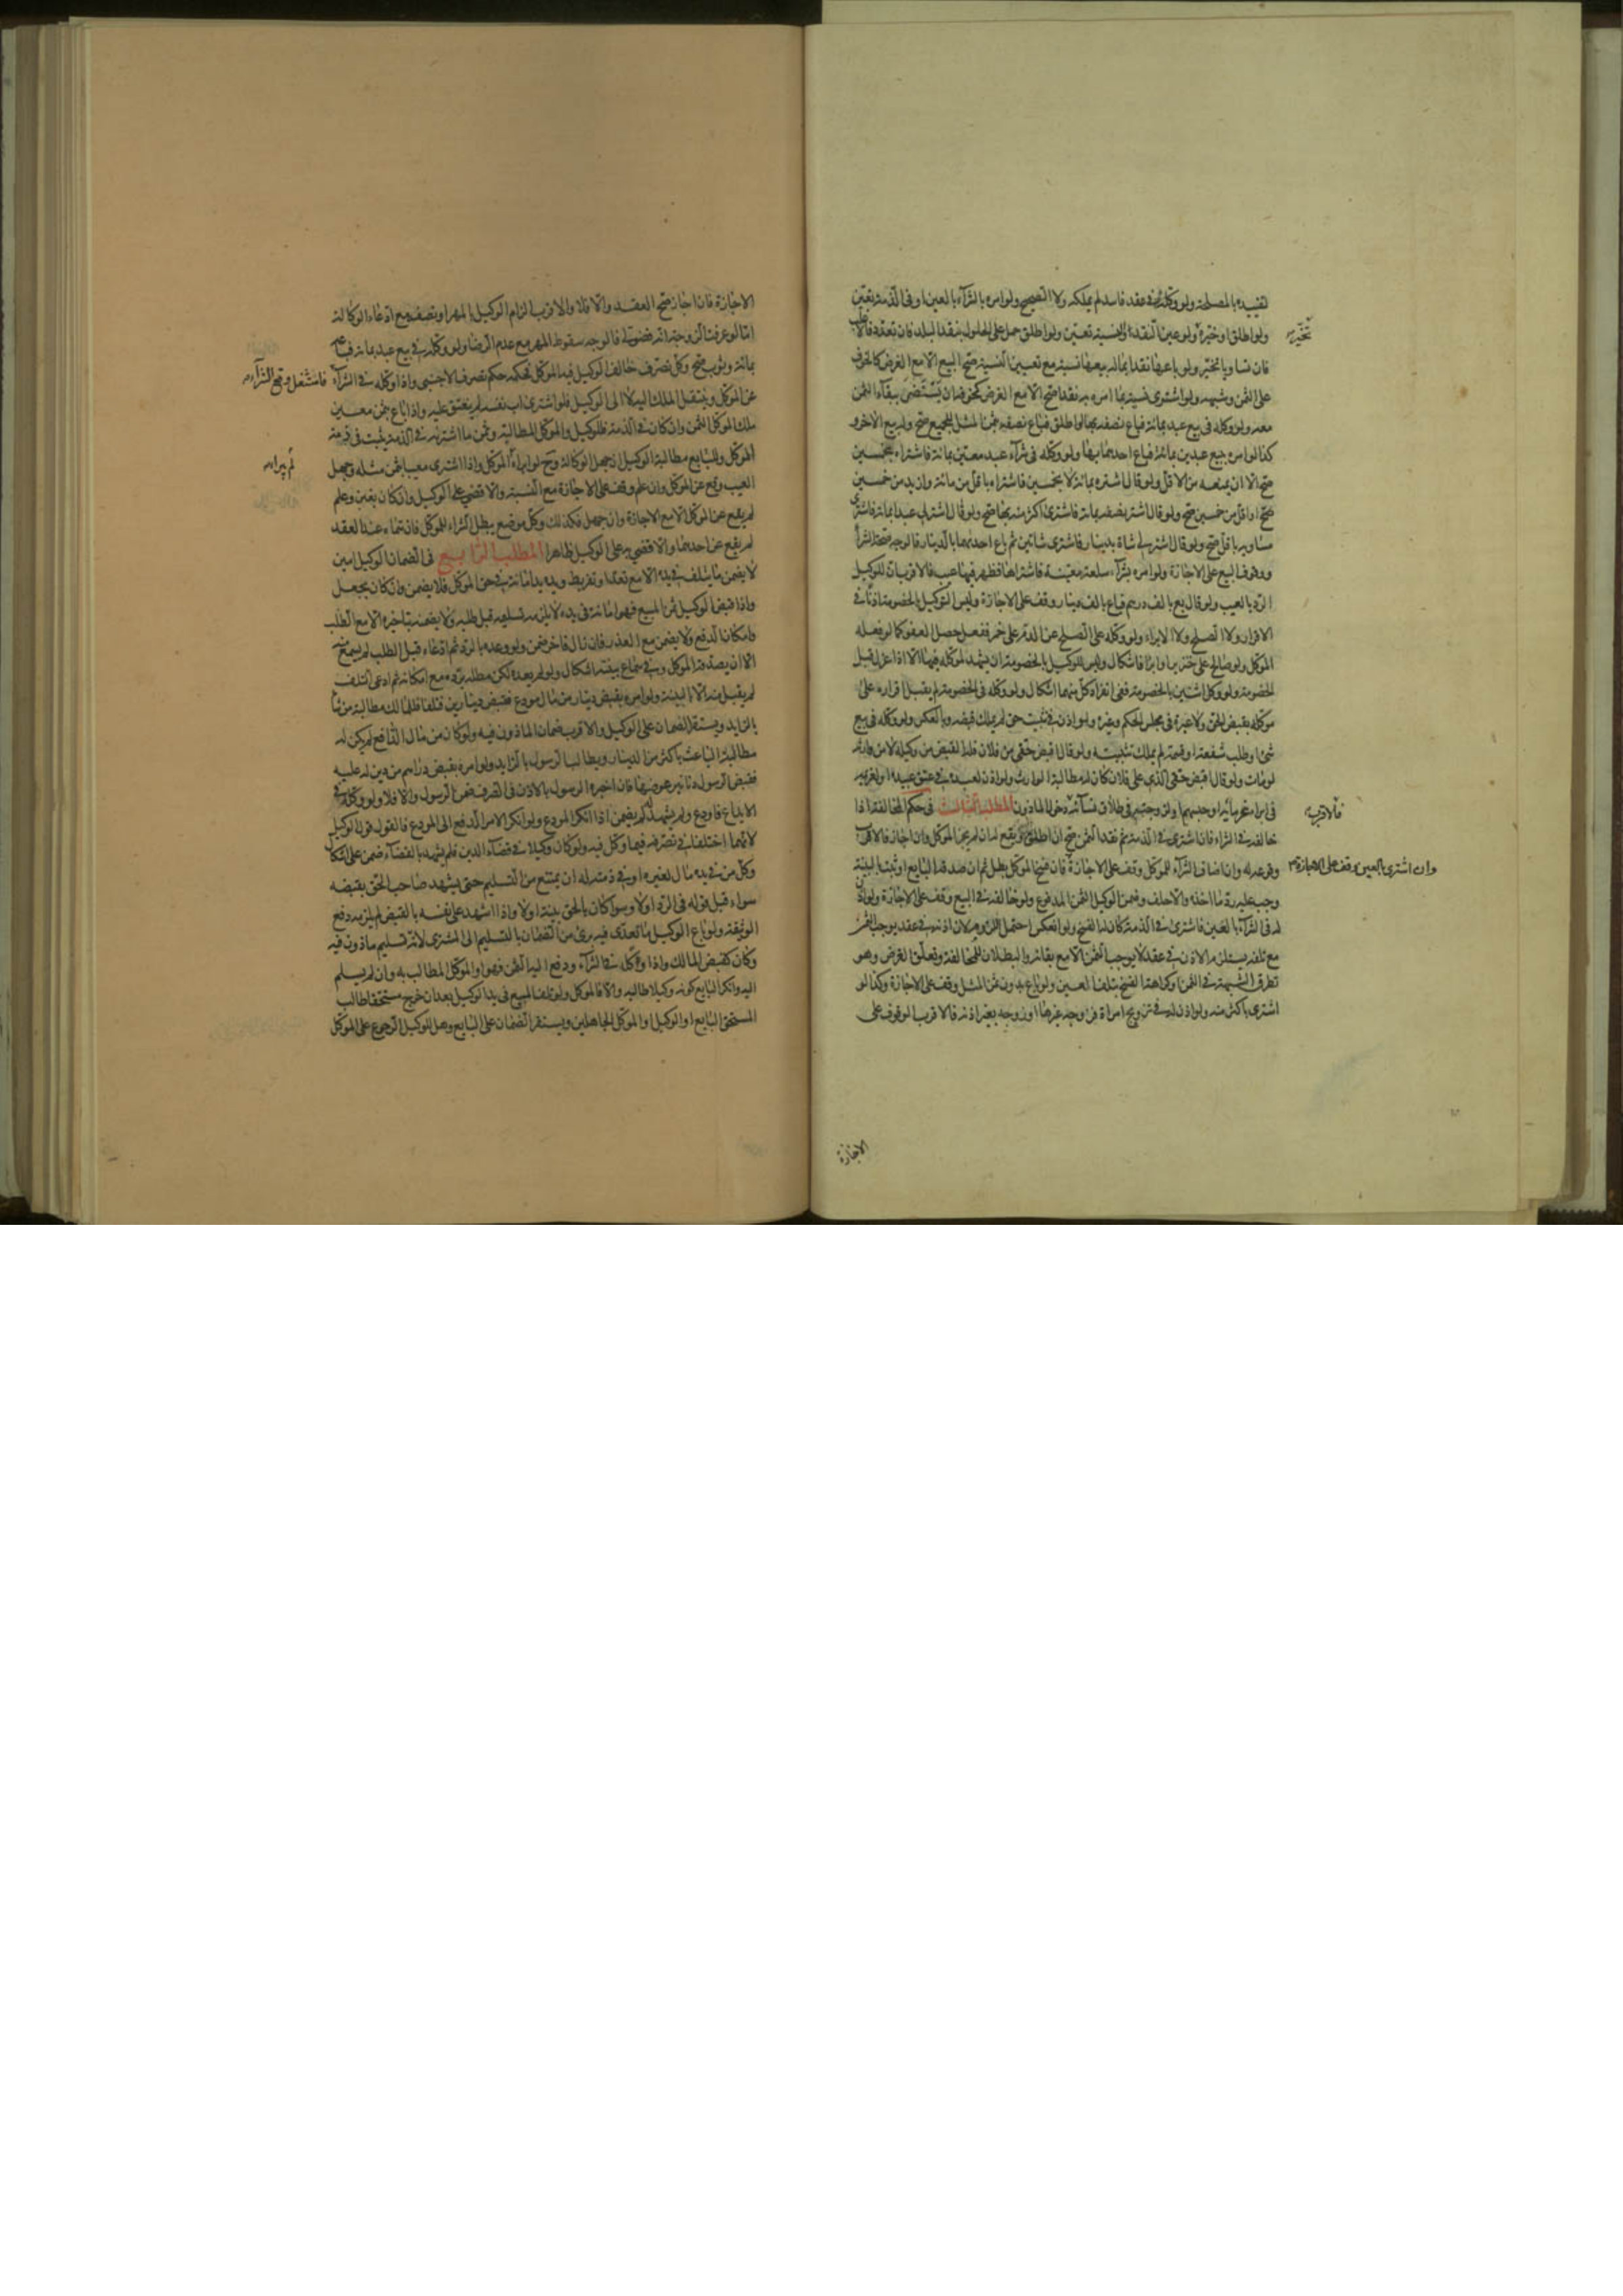 لتقييده بالمصلحة ولو وكله في عقد فاسد لم يملكه ولا الصحيح ولو امره بالشرآء بالعين او فى الذمة تعين
ولو اطلق او خيره ولو عين النقد او النسيئة تعين ولو اطلق حمل على الحلول بنقد البلد فان تعدد فالاغلب
تخيّر
فان تساويا تخير ولو باعها نقدا بماله بيعها نسيئة مع تعيين النسيئة صح البيع الا مع الغرض كالخوف
على الثمن وشبهه ولو اشترى نسيئة بما امره به نقدا صح الا مع الغرض كخوفه ان يستضر ببقآء الثمن
معه ولو وكله فى بيع عبد بمائة فباع نصفه بها او اطلق فباع نصفه بثمن المثل للجميع صح وله بيع الاخر و
كذا لو امره ببيع عبدين بمائة فباع احدهما بها ولو وكله فى شرآء عبد معين بمائة فاشتراه بخمسين
صح الا ان يمنعه من الاقل ولو قال اشتره بمائة لا بخمسين فاشتراه باقل من مائة وازيد من خمسين
صح او اقل من خمسين صح ولو قال اشتر نصفه بمائة فاشترى اكثر منه بها صح ولو قال اشتر لى عبدا بمائة فاشترى
مساويه باقل صح ولو قال اشتر لى شاة بدينار فاشترى شاتين ثم باع احدهما بالدينار فالوجه صحة الشرآء
ووقوف البيع على الاجازة ولو امره بشرآء سلعة معينة فاشتراها فظهر فيها عيب فالاقرب ان للوكيل
الرد بالعيب ولو قال بع بالف درهم فباع بالف دينار وقف على الاجازة وليس التوكيل بالخصومة اذنا فى
الاقرار ولا الصلح ولا الابراء ولو وكله على الصلح عن الدم على خمر ففعل حصل العفو كما لو فعله
الموكل ولو صالح على خنزير او ابرأ فاشكال وليس للوكيل بالخصومة ان يشهد لموكله فيها الا اذا عزل قبل
الخصومة ولو وكل اثنين بالخصومة ففى انفراد كل منهما اشكال ولو وكله فى الخصومة لم يقبل اقراره على
موكله بقبض الحق ولا غيره فى مجلس الحكم وغيره ولو اذن فى تثبيت حق لم يملك قبضه وبالعكس ولو وكله فى بيع
شئ او طلب شفعة او قسمة لم يملك تثبيته ولو قال اقبض حقى من فلان فله القبض من وكيله لا من وارثه
لو مات ولو قال اقبض حقى الذى على فلان كان له مطالبة الوارث ولو اذن لعبده فى عتق عبيده او لغريمه
فى ابراء غرمائه او حبسهم او لزوجته فى طلاق نسآئه دخل المأذون المطلب الثالث فى حكم المخالفة اذا
فالاقرب
خالفه فى الشراء فان اشترى فى الذمة ثم نقد الثمن صح ان اطلق ويقع له ان لم يجز الموكل وان اجاز فالاقرب
وقوعه له وان اضاف الشرآء للموكل وقف على الاجازة فان فسخ الموكل بطل ثم ان صدقه البايع او ثبت بالبينة
وان اشترى بالعين وقف على الاجازة
وجب عليه رد ما اخذه والا حلف وضمن الوكيل الثمن المدفوع ولو خالفه فى البيع وقف على الاجازة ولو اذن
له فى الشرآء بالعين فاشترى فى الذمة كان له الفسخ ولو انعكس احتمل اللزوم لان اذنه فى عقد يوجب الثمن
مع تلفه يستلزم الاذن فى عقد لا يوجب الثمن الا مع بقائه والبطلان للمخالفة وتعلق الغرض وهو
تطرق الشبهة فى الثمن او كراهة الفسخ بتلف العين ولو باع بدون ثمن المثل وقف على الاجازة وكذا لو
اشترى باكثر منه ولو اذن له فى تزويج امراة فزوجه غيرها او زوجه بغير اذنه فالاقرب الوقوف على
الاجازة
الاجازة فان اجاز صح العقد والا فلا والاقرب الزام الوكيل بالمهر او نصفه مع ادعاء الوكالة
اما لو عرفت الزوجة انه فضولى فالوجه سقوط المهر مع عدم الرضا ولو وكله فى بيع عبد بمائة فباعه
بمائة وثوب صح وكل تصرف خالف الوكيل فيه الموكل فحكمه حكم تصرف الاجنبى واذا وكله فى الشرآء
فامتثل وقع الشرآء
عن الموكل وينتقل الملك اليه لا الى الوكيل فلو اشترى اب نفسه لم ينعتق عليه واذا باع بثمن معين
ملك الموكل الثمن وان كان فى الذمة فللوكيل والموكل المطالبة وثمن ما اشتراه فى الذمة يثبت فى ذمة
الموكل وللبايع مطالبة الوكيل ان جهل الوكالة وح لو ابراه الموكل واذا اشترى معيبا بثمن مثله وجهل
لم يبراء
العيب وقع عن الموكل وان علم وقف على الاجازة مع النسبة والا قضى على الوكيل وان كان بغبن وعلم
لم يقع عن الموكل الا مع الاجازة وان جهل فكذلك وكل موضع يبطل الشراء للموكل فان سماه عند العقد
لم يقع عن احدهما والا قضى به على الوكيل ظاهرا المطلب الرابع فى الضمان الوكيل امين
لا يضمن ما يتلف فى يده الا مع تعد او تفريط ويده يد امانة فى حق الموكل فلا يضمن وان كان بجعل
واذا قبض الوكيل ثمن المبيع فهو امانة فى يده لا يلزمه تسليمه قبل طلبه ولا يضمنه بتاخيره الا مع الطلب
وامكان الدفع ولا يضمن مع العذر فان زال فاخر ضمن ولو وعده بالرد ثم ادعاء قبل الطلب لم يسمع
الا ان يصدقه الموكل وفى سماع بينته اشكال ولو لم يعده لكن مطله برده مع امكانه ثم ادعى التلف
لم يقبل منه الا بالبينة ولو امره بقبض دينار من مال مودع فقبض دينارين فتلفا فللمالك مطالبة من شا
بالزايد ويستقر الضمان على الوكيل والاقرب ضمان الماذون فيه ولو كان من مال الدافع لم يكن له
مطالبة الباعث باكثر من الدينار ويطالب الرسول بالزايد ولو امره بقبض دراهم من دين له عليه
فقبض الرسول دنانير عوضها فان اخبره الرسول بالاذن فى التصرف ضمن الرسول والا فلا ولو وكله فى
الايداع فاودع ولم يشهد لم يضمن اذا انكر المودع ولو انكر الامر الدفع الى المودع فالقول قول الوكيل
لانهما اختلفا فى تصرفه فيما وكل فيه ولو كان وكيلا فى قضآء الدين فلم يشهد بالقضآء ضمن على اشكال
وكل من فى يده مال لغيره او فى ذمته له ان يمتنع من التسليم حتى يشهد صاحب الحق بقبضه
سواء قبل قوله فى الرد او لا وسوا كان بالحق بينة او لا واذا اشهد على نفسه بالقبض لم يلزمه دفع
الوثيقة ولو باع الوكيل ما تعدى فيه برئ من الضمان بالتسليم الى المشترى لانه تسليم ماذون فيه
وكان كقبض المالك واذا وكل فى الشرآء ودفع اليه الثمن فهو والموكل المطالب به وان لم يسلم
اليه وانكر البايع كونه وكيلا طالبه والا فالموكل ولو تلف المبيع فى يد الوكيل بعد ان خرج مستحقا طالب
المستحق البايع او الوكيل او الموكل الجاهلين ويستقر الضمان على البايع وهل للوكيل الرجوع على الموكل